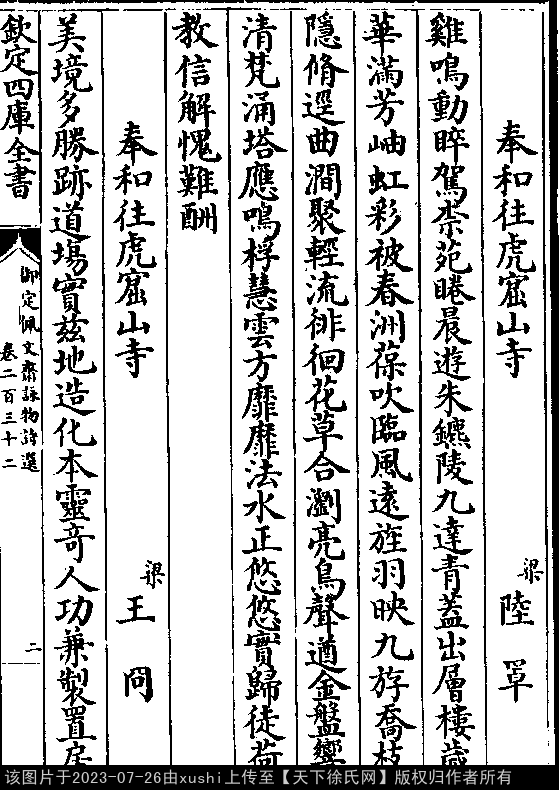 奉和往虎窟山寺
梁 陸罩
雞鳴動睟駕柰苑睠晨遊朱鑣陵九達青蓋出層樓歲
華滿芳岫虹彩被春洲葆吹臨風遠旌羽映九斿喬枝
隱脩逕曲澗聚輕流徘徊花草合瀏亮鳥聲遒金盤響
清梵涌塔應鳴桴慧雲方靡靡法水正悠悠實歸徒荷
教信解愧難酬
奉和往虎窟山寺
梁 王冏
美境多勝跡道場實兹地造化本靈竒人功兼製置房
欽定四庫全書
御定佩文齋詠物詩選
卷二百三十二
二
该图片于2023-07-26由xushi上传至【天下徐氏网】版权归作者所有